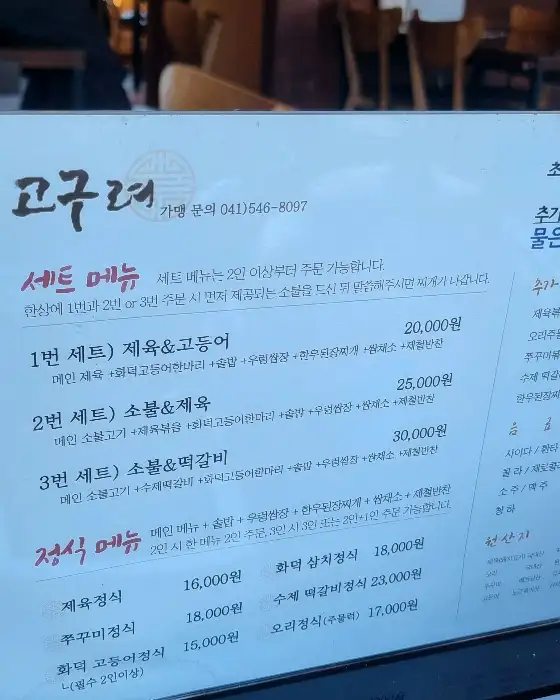 고구려
가맹 문의 041)546-8097
세트 메뉴 세트 메뉴는 2인 이상부터 주문 가능합니다.
한상에 1번과 2번 or 3번 주문 시 먼저 제공되는 소불을 드신 뒤 말씀해주시면 찌개가 나갑니다.
1번 세트) 제육&고등어 20,000원
메인 제육 +화덕고등어한마리 +솥밥 +우렁쌈장 +한우된장찌개 +쌈채소 +제철반찬
2번 세트) 소불&제육 25,000원
메인 소불고기 +제육볶음 +화덕고등어한마리 +솥밥 +우렁쌈장 +쌈채소 +제철반찬
3번 세트) 소불&떡갈비 30,000원
메인 소불고기 +수제떡갈비 +화덕고등어한마리 +솥밥 +우렁쌈장 +쌈채소 +제철반찬
정식 메뉴 메인 메뉴 + 솥밥 + 우렁쌈장 + 한우된장찌개 + 쌈채소 + 제철반찬
2인 시 한 메뉴 2인 주문, 3인 시 3인 또는 2인+1인 주문 가능합니다.
제육정식 16,000원
쭈꾸미정식 18,000원
화덕 고등어정식 15,000원
ㄴ(필수 2인이상)
화덕 삼치정식 18,000원
수제 떡갈비정식 23,000원
오리정식(주물럭) 17,000원
추가
물은
추가
제육볶
오리주물
쭈꾸미볶
수제 떡갈
한우된장찌
음 료
사이다 / 환타
콜라 / 제로콜
소주 / 맥주
청하
원산지